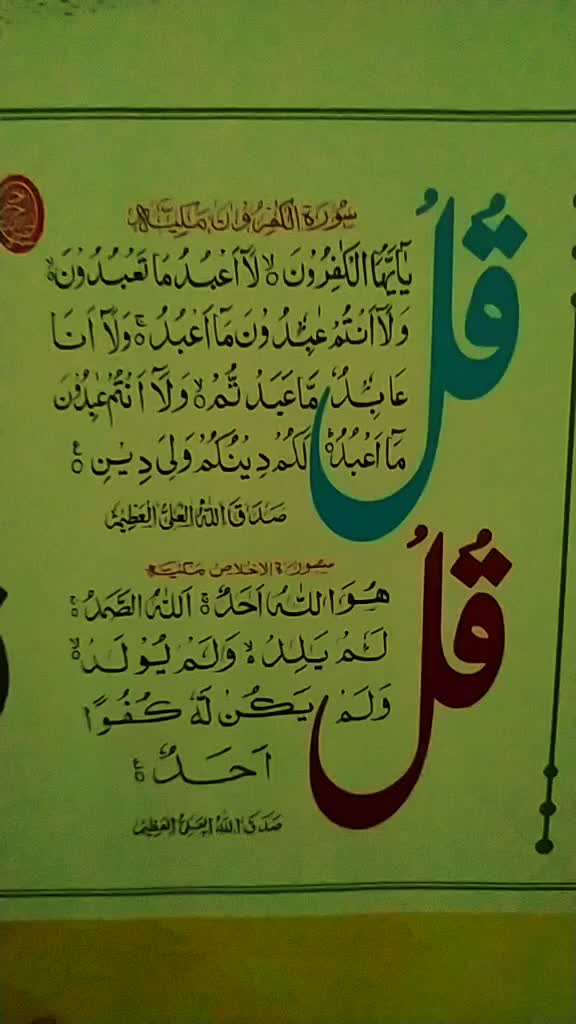 سورة الكفرون مكية
قُلْ
يٰٓاَيُّهَا الْكٰفِرُوْنَ ۙ لَآ اَعْبُدُ مَا تَعْبُدُوْنَ ۙ
وَلَآ اَنْتُمْ عٰبِدُوْنَ مَآ اَعْبُدُ ۚ وَلَآ اَنَا
عَابِدٌ مَّا عَبَدْتُّمْ ۙ وَلَآ اَنْتُمْ عٰبِدُوْنَ
مَآ اَعْبُدُ ؕ لَكُمْ دِيْنُكُمْ وَلِيَ دِيْنِ ۟
صدق الله العلي العظيم
سورة الاخلاص مكية
قُلْ
هُوَ اللّٰهُ اَحَدٌ ۚ اَللّٰهُ الصَّمَدُ ۚ
لَمْ يَلِدْ ۙ وَلَمْ يُوْلَدْ ۙ
وَلَمْ يَكُنْ لَّهٗ كُفُوًا
اَحَدٌ ۟
صدق الله العلي العظيم